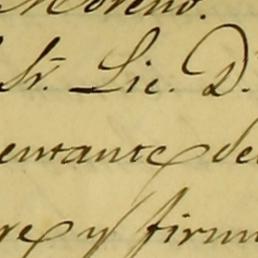 Moreno.
Sr. Lic. D.
entante del
re y firm